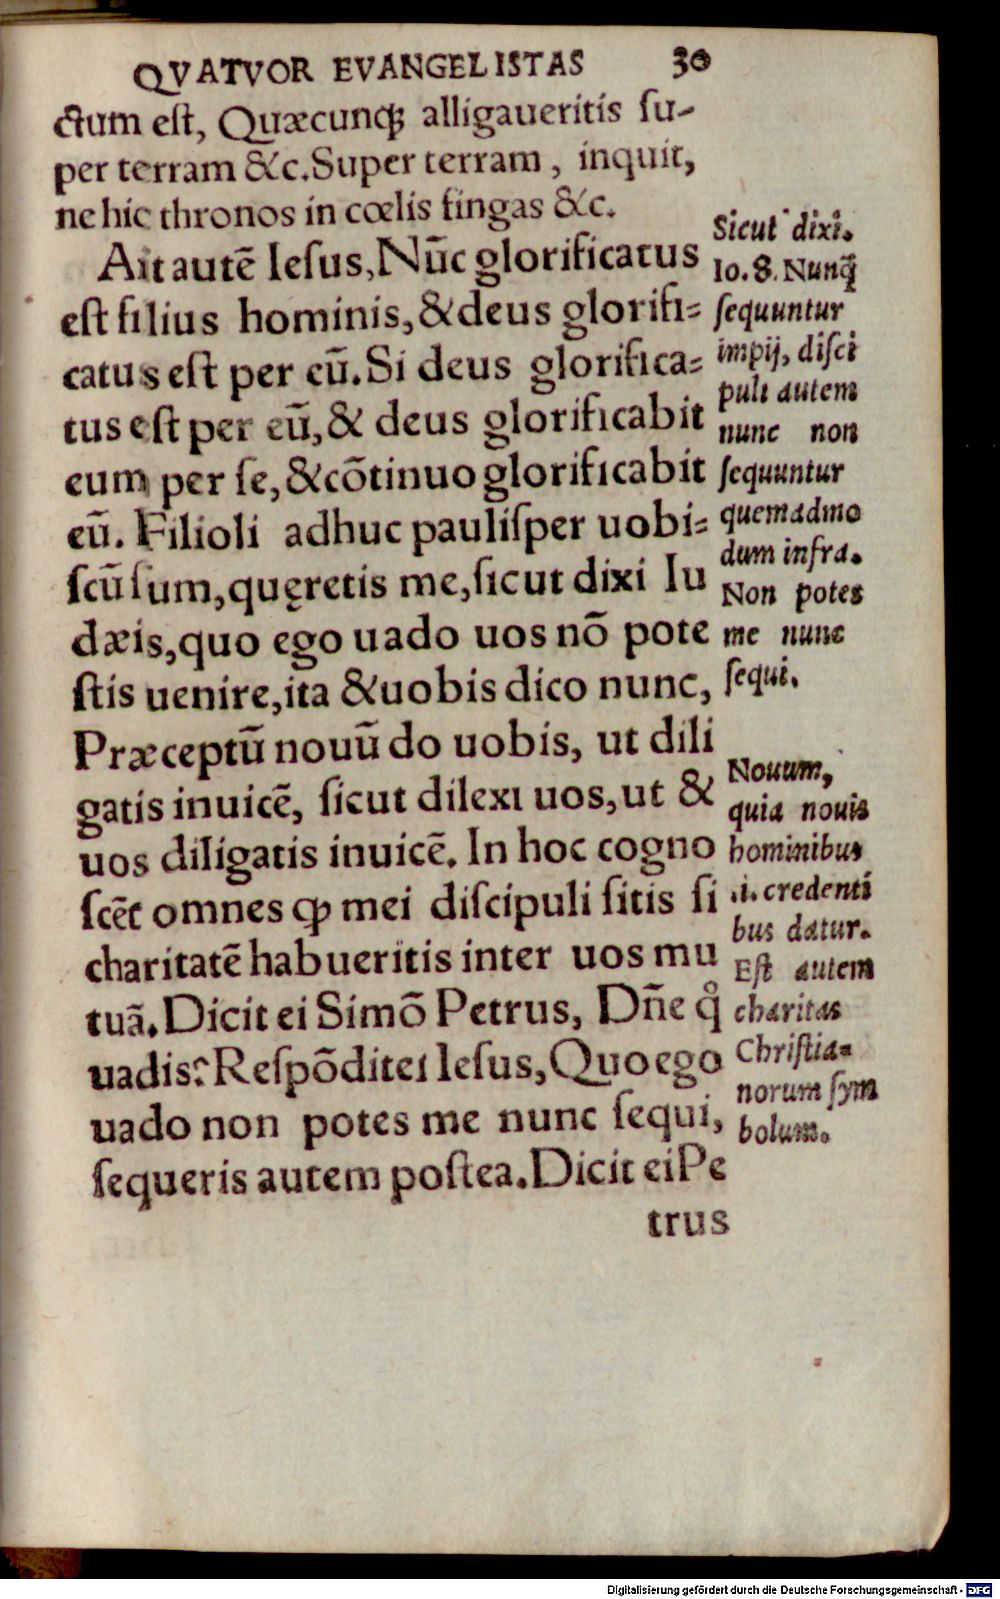 QVATVOR EVANGELISTAS 30
ctum est, Quæcunqꝫ alligaueritis su-
per terram &c. Super terram, inquit,
ne hic thronos in cœlis fingas &c.
Ait autē Iesus, Nūc glorificatus
est filius hominis, & deus glorifi-
catus est per eū. Si deus glorifica-
tus est per eū, & deus glorificabit
eum per se, & cōtinuo glorificabit
eū. Filioli adhuc paulisper uobi-
scū sum, quęretis me, sicut dixi Iu
dæis, quo ego uado uos nō pote
stis uenire, ita & uobis dico nunc,
Præceptū nouū do uobis, ut dili
gatis inuicē, sicut dilexi uos, ut &
uos diligatis inuicē. In hoc cogno
scēt omnes ꝙ mei discipuli sitis si
charitatē habueritis inter uos mu
tuā. Dicit ei Simō Petrus, Dñe q̊
uadis? Respōdit ei Iesus, Quo ego
uado non potes me nunc sequi,
sequeris autem postea. Dicit ei Pe
trus
Sicut dixi.
Io. 8. Nunq̃
sequuntur
impij, disci
puli autem
nunc non
sequuntur
quemadmo
dum infra.
Non potes
me nunc
sequi.
Nouum,
quia nouis
hominibus
.i. credenti
bus datur.
Est autem
charitas
Christia-
norum sym
bolum.
Digitalisierung gefördert durch die Deutsche Forschungsgemeinschaft - DFG